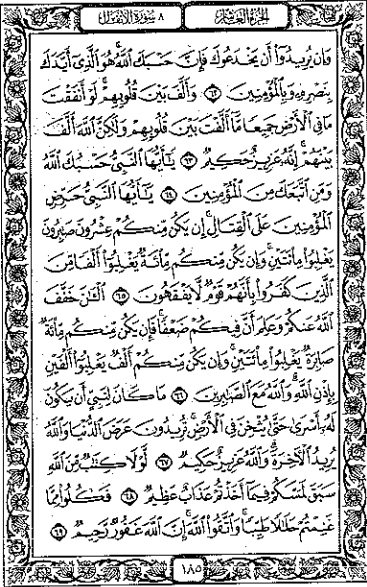 الجزء العاشر
٨ سورة الأنفال
وَإِن يُرِيدُوٓا۟ أَن يَخْدَعُوكَ فَإِنَّ حَسْبَكَ ٱللَّهُ ۚ هُوَ ٱلَّذِىٓ أَيَّدَكَ
بِنَصْرِهِۦ وَبِٱلْمُؤْمِنِينَ ٦٢ وَأَلَّفَ بَيْنَ قُلُوبِهِمْ ۚ لَوْ أَنفَقْتَ
مَا فِى ٱلْأَرْضِ جَمِيعًا مَّآ أَلَّفْتَ بَيْنَ قُلُوبِهِمْ وَلَٰكِنَّ ٱللَّهَ أَلَّفَ
بَيْنَهُمْ ۚ إِنَّهُۥ عَزِيزٌ حَكِيمٌ ٦٣ يَٰٓأَيُّهَا ٱلنَّبِىُّ حَسْبُكَ ٱللَّهُ
وَمَنِ ٱتَّبَعَكَ مِنَ ٱلْمُؤْمِنِينَ ٦٤ يَٰٓأَيُّهَا ٱلنَّبِىُّ حَرِّضِ
ٱلْمُؤْمِنِينَ عَلَى ٱلْقِتَالِ ۚ إِن يَكُن مِّنكُمْ عِشْرُونَ صَٰبِرُونَ
يَغْلِبُوا۟ مِا۟ئَتَيْنِ ۚ وَإِن يَكُن مِّنكُم مِّا۟ئَةٌ يَغْلِبُوٓا۟ أَلْفًا مِّنَ
ٱلَّذِينَ كَفَرُوا۟ بِأَنَّهُمْ قَوْمٌ لَّا يَفْقَهُونَ ٦٥ ٱلْـَٰٔنَ خَفَّفَ
ٱللَّهُ عَنكُمْ وَعَلِمَ أَنَّ فِيكُمْ ضَعْفًا ۚ فَإِن يَكُن مِّنكُم مِّا۟ئَةٌ
صَابِرَةٌ يَغْلِبُوا۟ مِا۟ئَتَيْنِ ۚ وَإِن يَكُن مِّنكُمْ أَلْفٌ يَغْلِبُوٓا۟ أَلْفَيْنِ
بِإِذْنِ ٱللَّهِ ۗ وَٱللَّهُ مَعَ ٱلصَّٰبِرِينَ ٦٦ مَا كَانَ لِنَبِىٍّ أَن يَكُونَ
لَهُۥٓ أَسْرَىٰ حَتَّىٰ يُثْخِنَ فِى ٱلْأَرْضِ ۚ تُرِيدُونَ عَرَضَ ٱلدُّنْيَا وَٱللَّهُ
يُرِيدُ ٱلْءَاخِرَةَ ۗ وَٱللَّهُ عَزِيزٌ حَكِيمٌ ٦٧ لَّوْلَا كِتَٰبٌ مِّنَ ٱللَّهِ
سَبَقَ لَمَسَّكُمْ فِيمَآ أَخَذْتُمْ عَذَابٌ عَظِيمٌ ٦٨ فَكُلُوا۟ مِمَّا
غَنِمْتُمْ حَلَٰلًا طَيِّبًا ۚ وَٱتَّقُوا۟ ٱللَّهَ ۚ إِنَّ ٱللَّهَ غَفُورٌ رَّحِيمٌ ٦٩
١٨٥